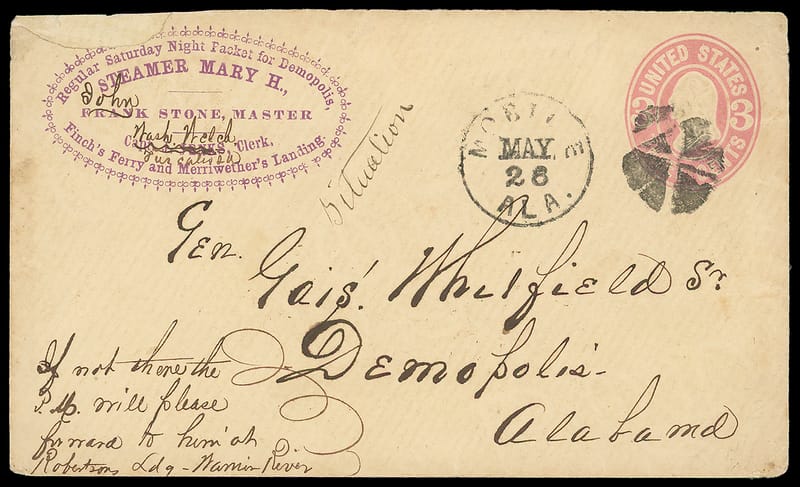 Regular Saturday Night Packet for Demopolis,
STEAMER MARY H.,
John
FRANK STONE, MASTER
Wash Welch
Clerk.
Finch's Ferry and Merriwether's Landing.
Situation
MOBILE
MAY
26
ALA.
UNITED STATES
3 CTS 3
Gen.
Gais! Whitfield Sr
Demopolis-
Alabama
If not there the
P.M. will please
forward to him at
Robertsons Ldg - Warrior River